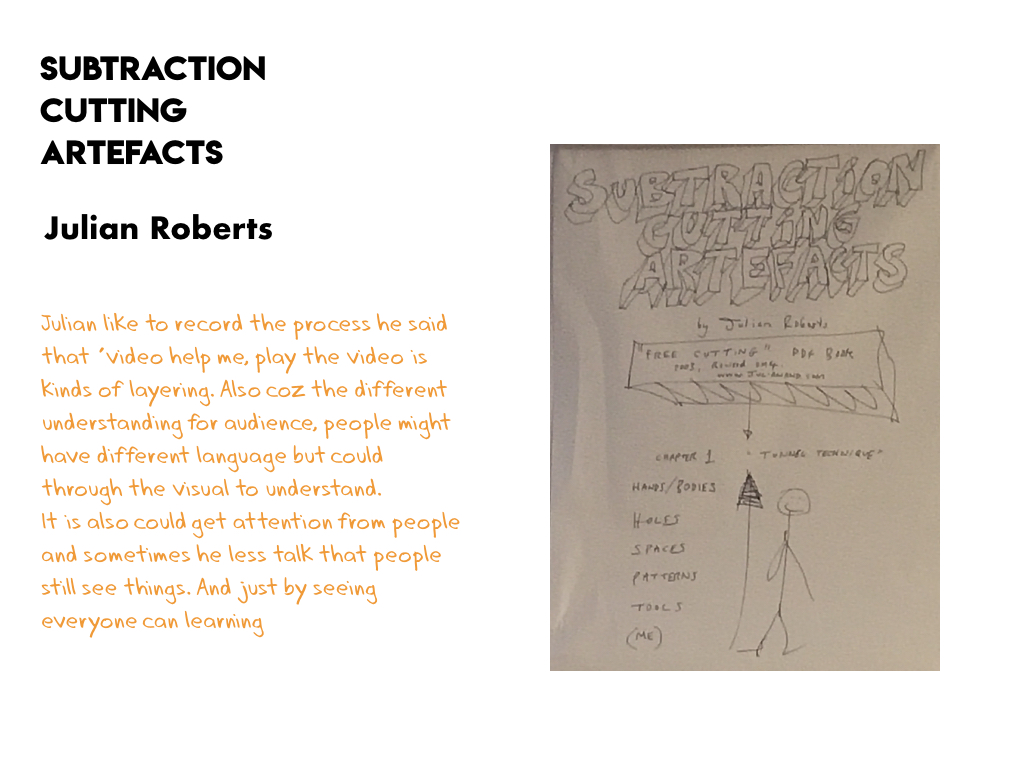 SUBTRACTION
CUTTING
ARTEFACTS
Julian Roberts
Julian like to record the process he said
that ‘video help me, play the video is
kinds of layering. Also coz the different
understanding for audience, people might
have different language but could
through the visual to understand.
It is also could get attention from people
and sometimes he less talk that people
still see things. And just by seeing
everyone can learning
SUBTRACTION
CUTTING
ARTEFACTS
by Julian Roberts
"FREE CUTTING" PDF Book
CHAPTER 1 "TUNNEL TECHNIQUE"
HANDS/BODIES
HOLES
SPACES
PATTERNS
TOOLS
(ME)